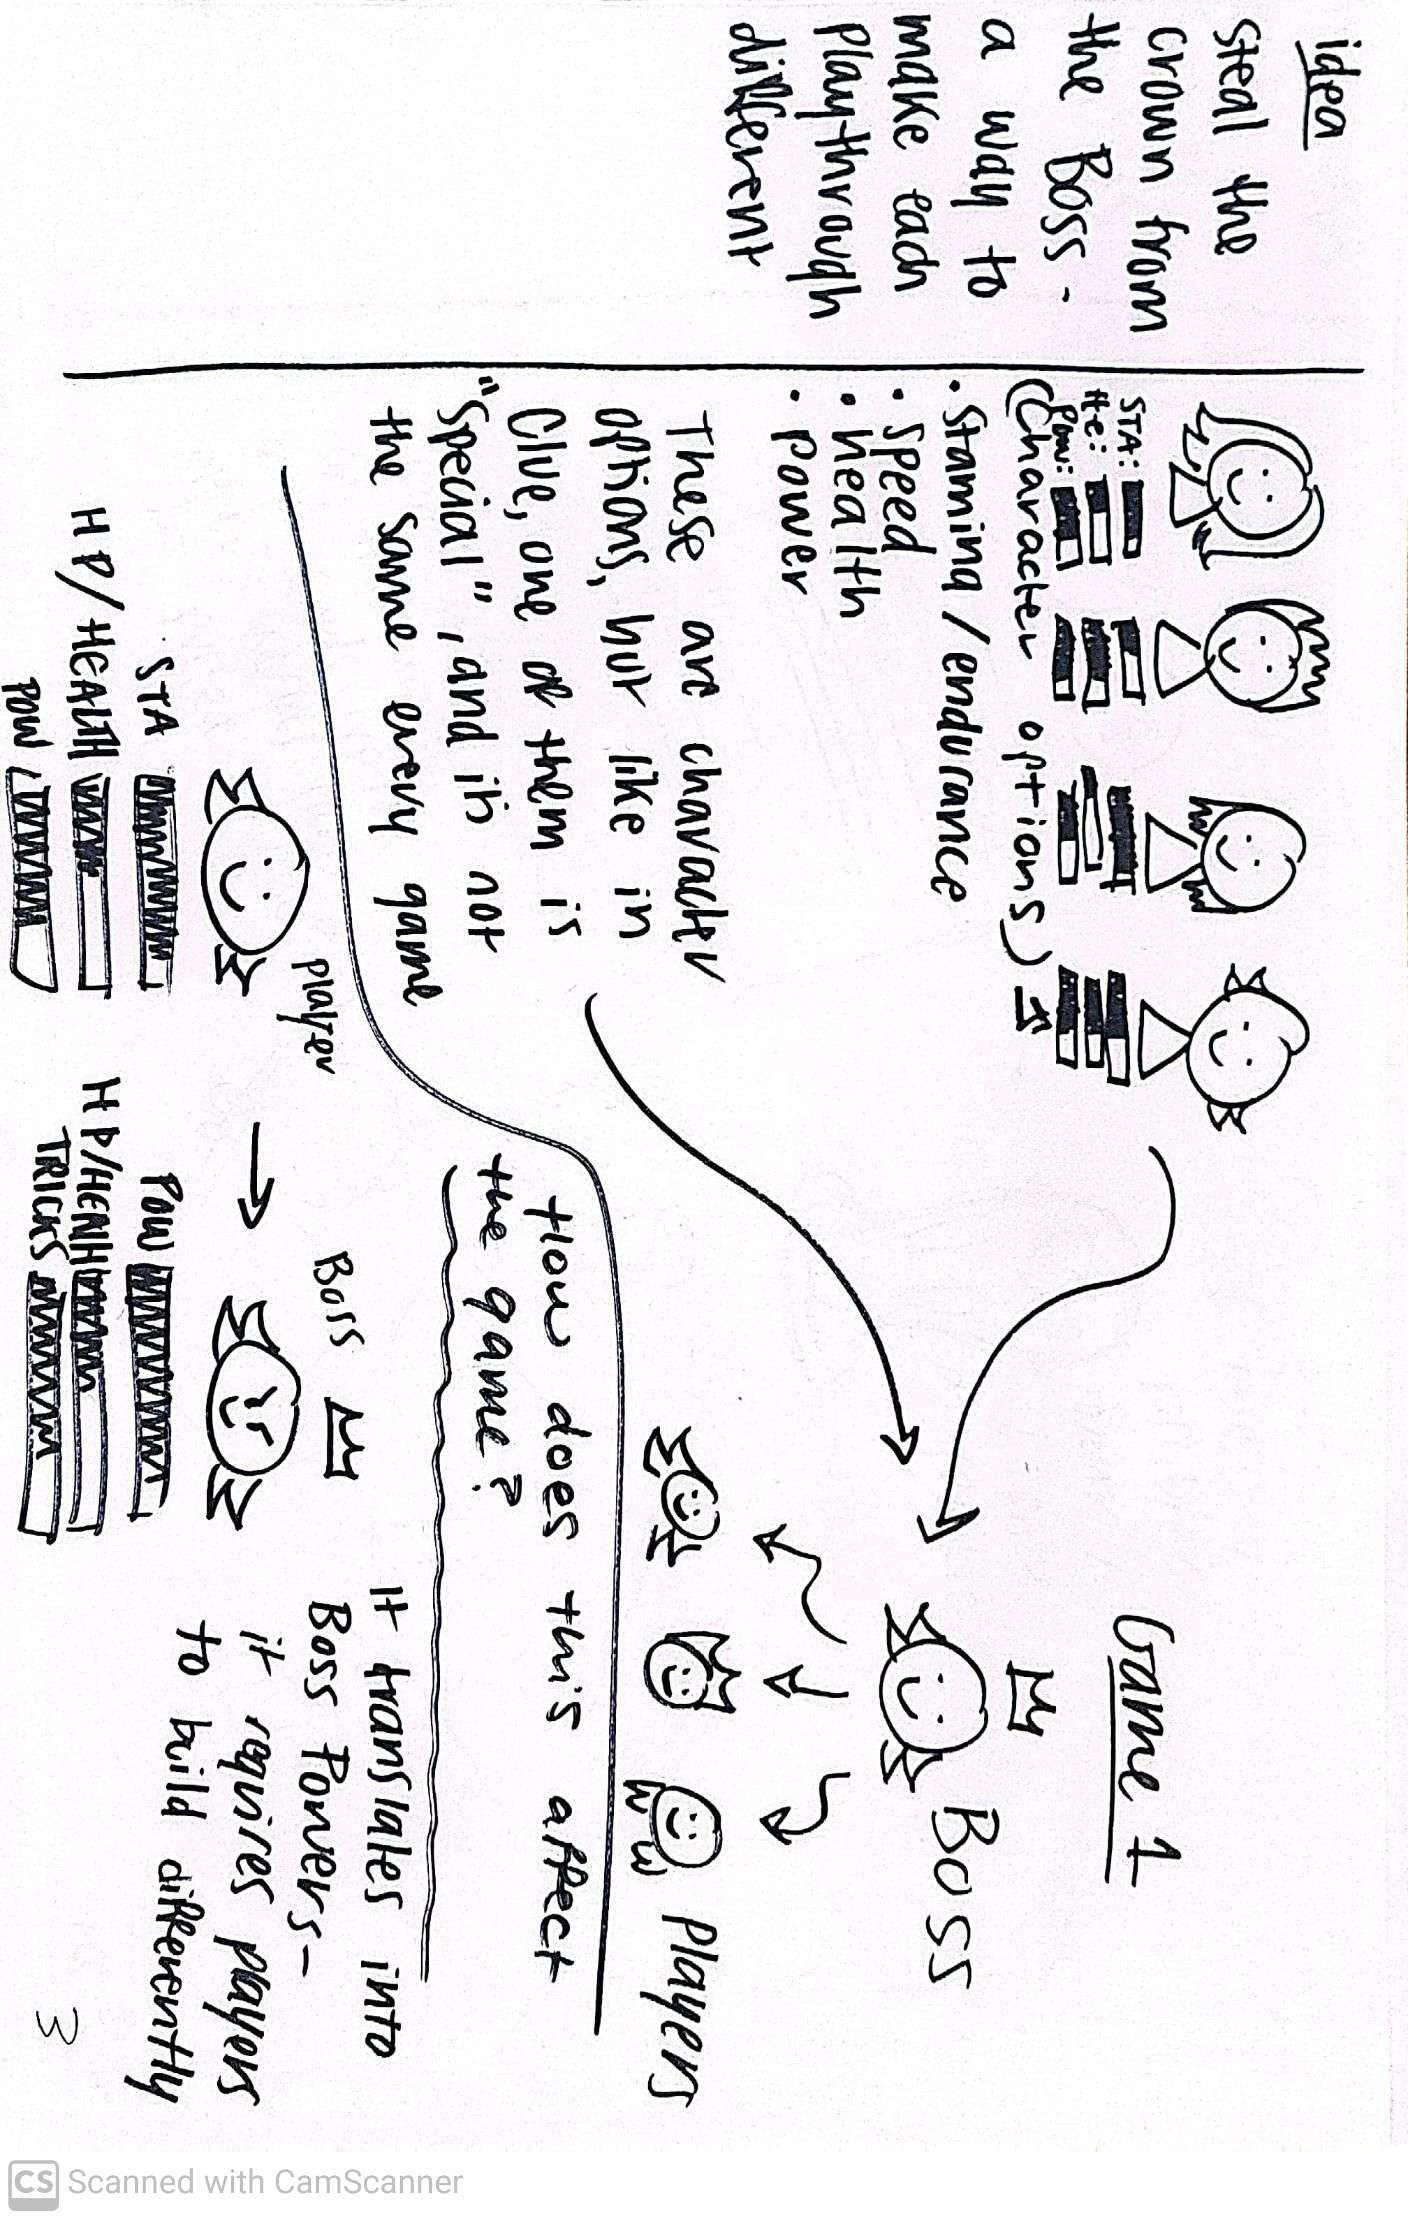 idea
steal the
crown from
the Boss -
a way to
make each
playthrough
different
STA:
He:
Pow:
(Character options)
• Stamina / endurance
• Speed
• health
• power
These are character
options, but like in
Clue, one of them is
"Special", and it's not
the same every game
Game 1
Boss
Players
How does this affect
the game?
Player
STA
HP/HEALTH
POW
Boss
POW
HP/HEALTH
TRICKS
It translates into
Boss Powers-
it requires players
to build differently
3
CS Scanned with CamScanner